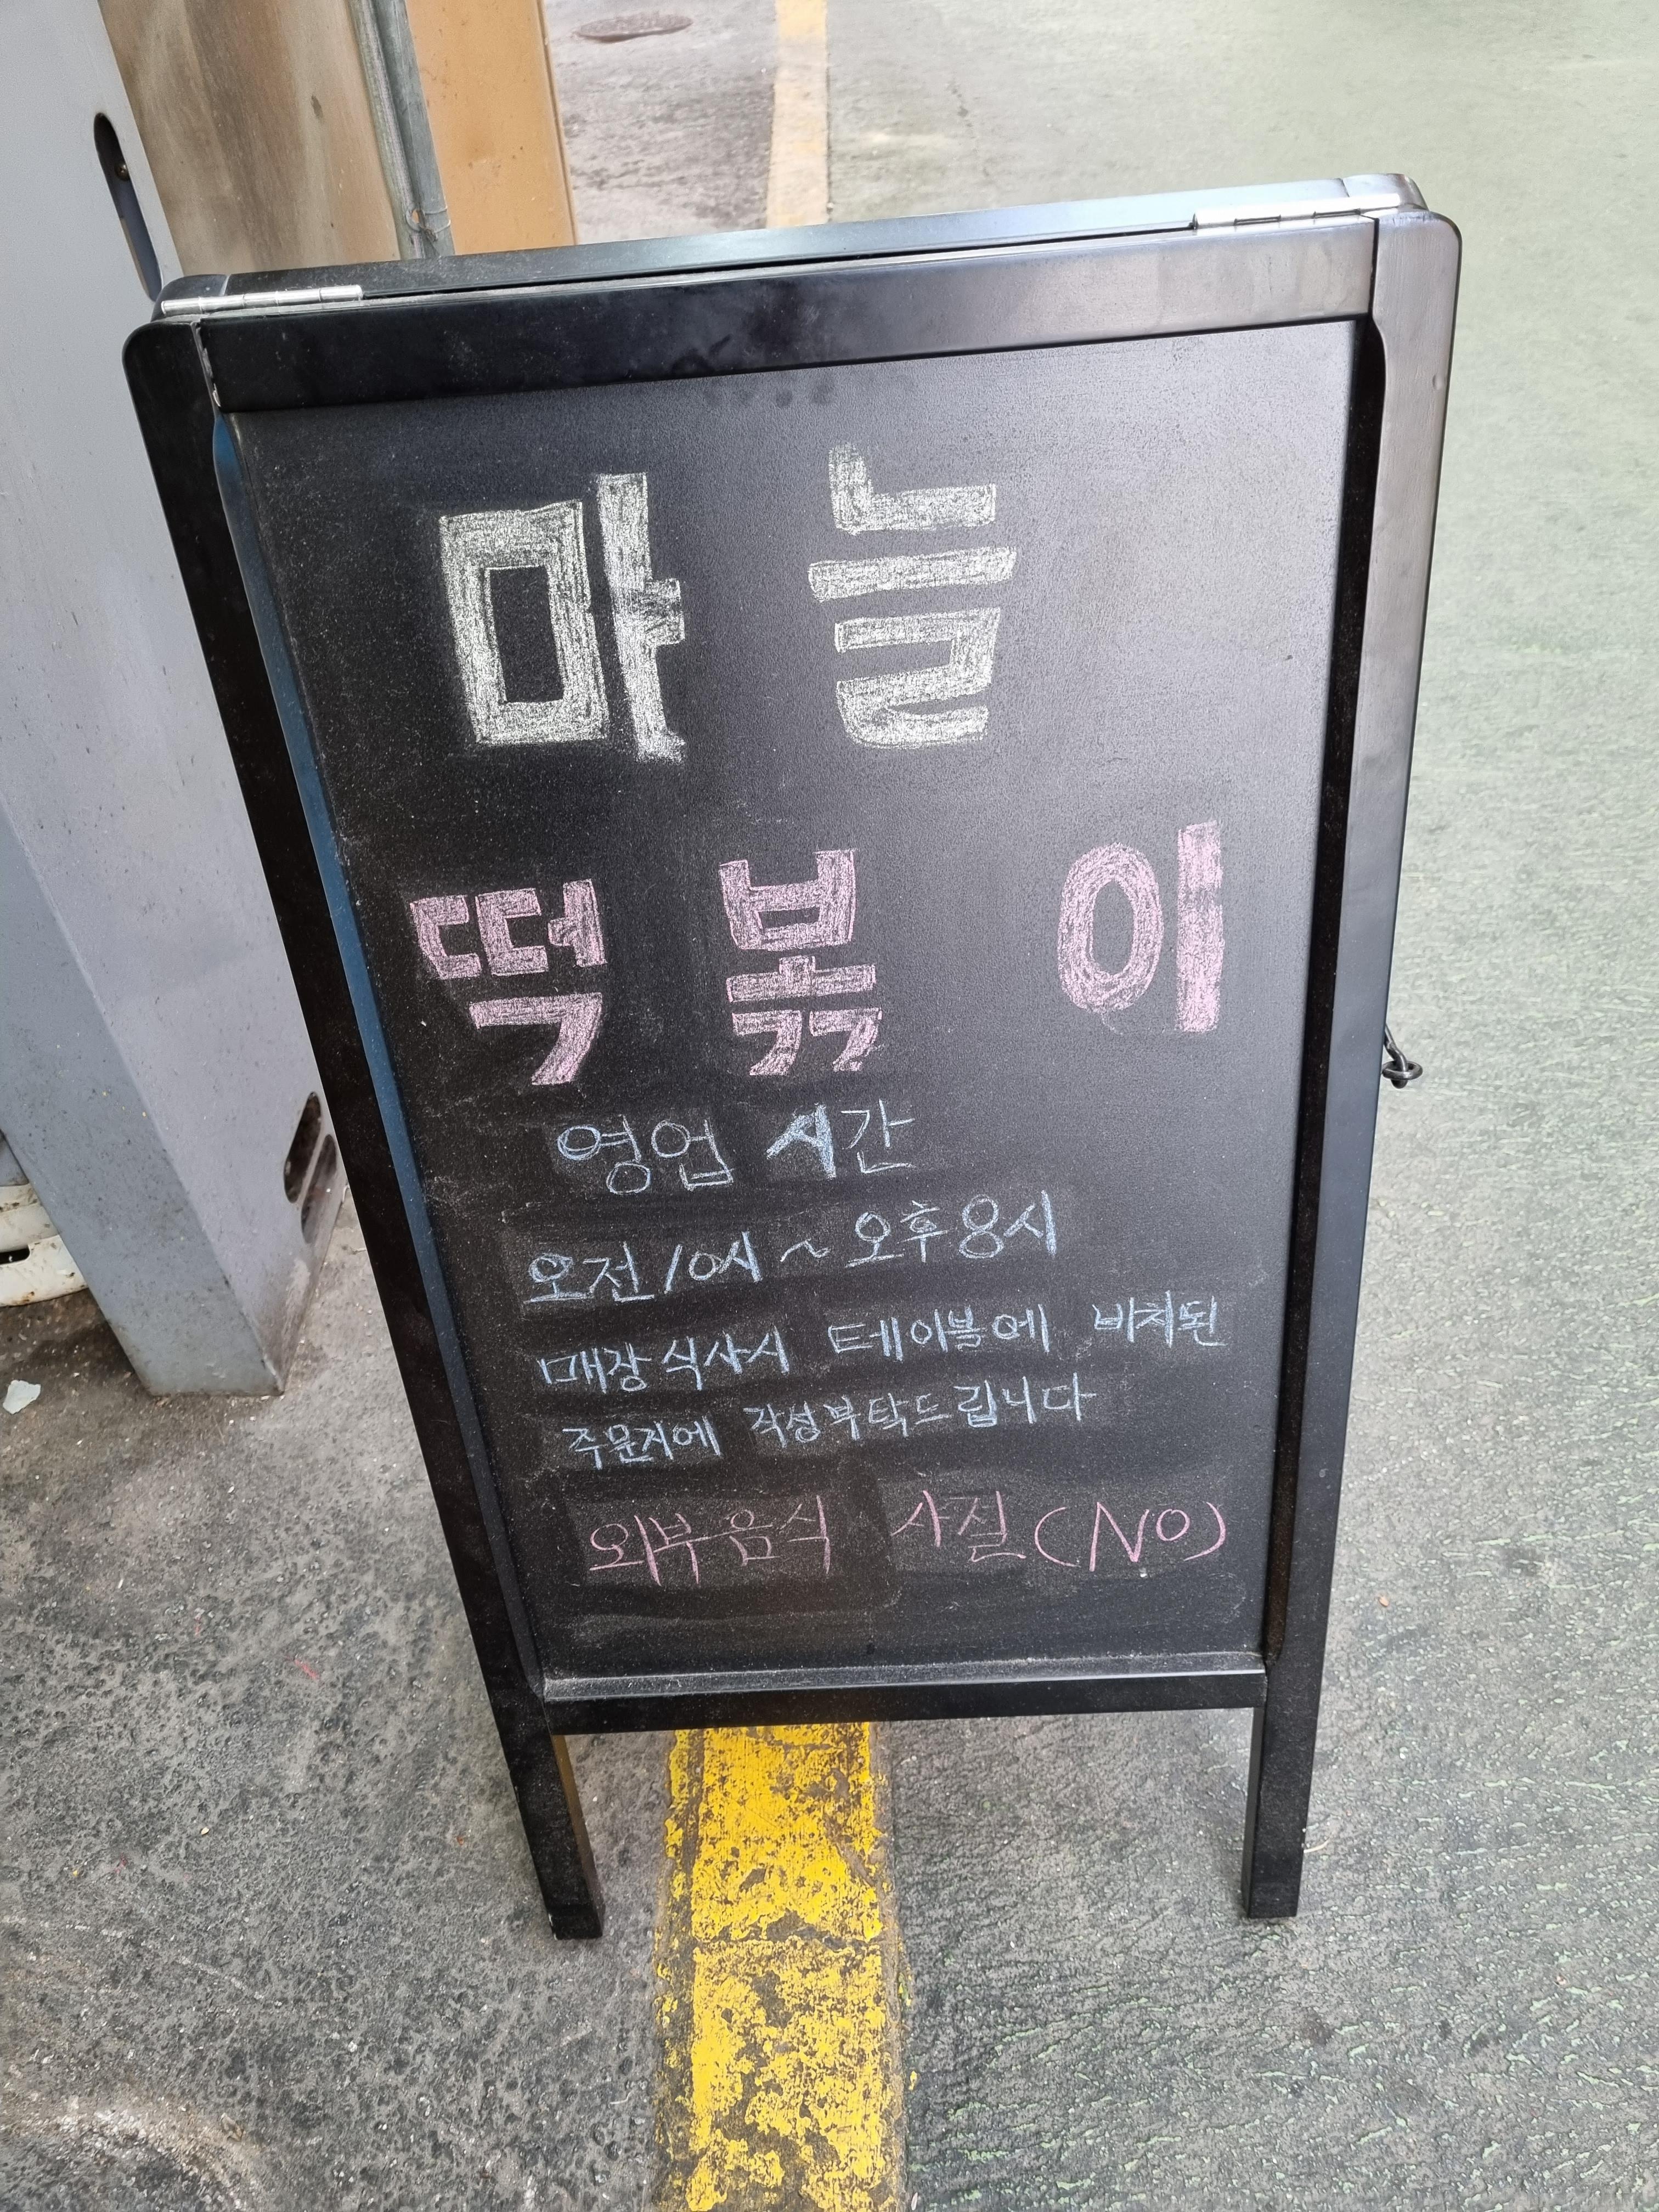 마늘
떡볶이
영업 시간
오전10시 ~ 오후8시
매장식사시 테이블에 비치된
주문지에 작성부탁드립니다
외부음식 사절(NO)